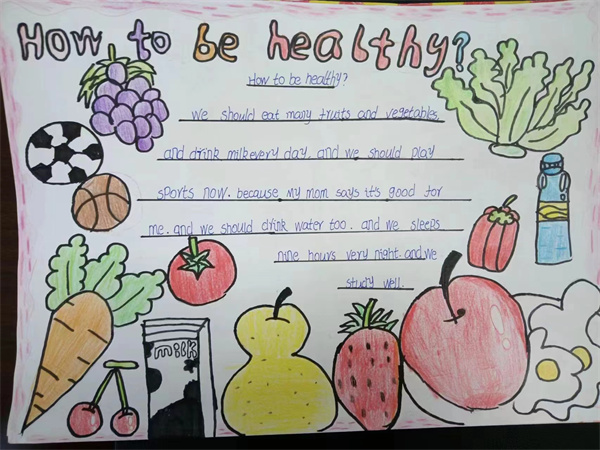 How to be healthy?
How to be healthy?
we should eat many fruits and vegetables,
and drink milk every day. and we should play
sports now. because my mom says it's good for
me. and we should drink water too. and we sleeps
nine hours very night. and we
study well.
milk